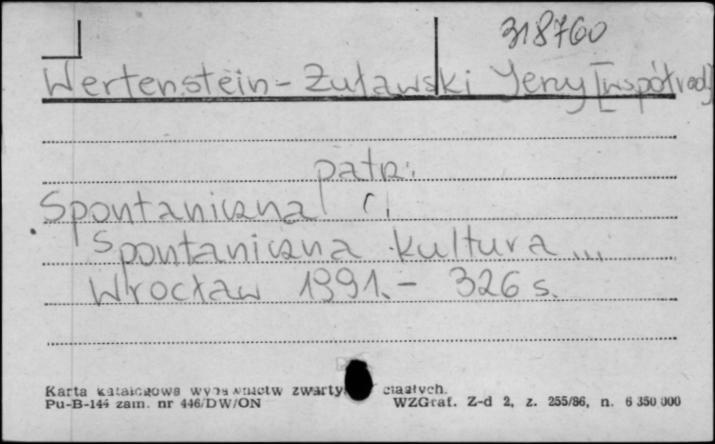 318760
Wertenstein-Żuławski Jerzy [współred.]
patrz:
Spontaniczna
Spontaniczna kultura ...
Wrocław 1991.- 326 s.
Karta katalogowa wydawnictw zwarty ciągłych.
Pu-B-144 zam. nr 446/DW/ON WZGraf. Z-d 2, z. 255/86, n. 6 350 000